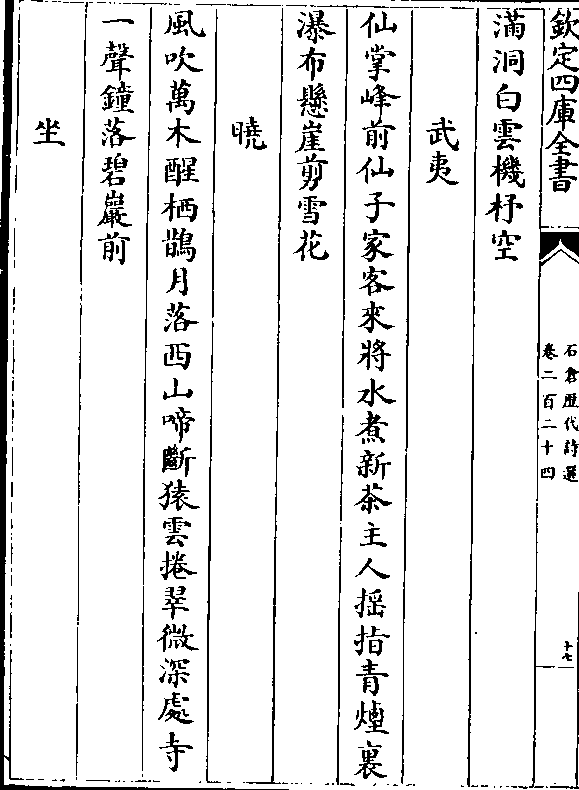 欽定四庫全書
石倉歴代詩選
卷二百二十四
十七
滿洞白雲機杼空
武夷
仙掌峰前仙子家客來將水煮新茶主人揺指青煙裏
瀑布懸崖剪雪花
曉
風吹萬木醒栖鵲月落西山啼斷猿雲捲翠微深處寺
一聲鐘落碧巖前
坐